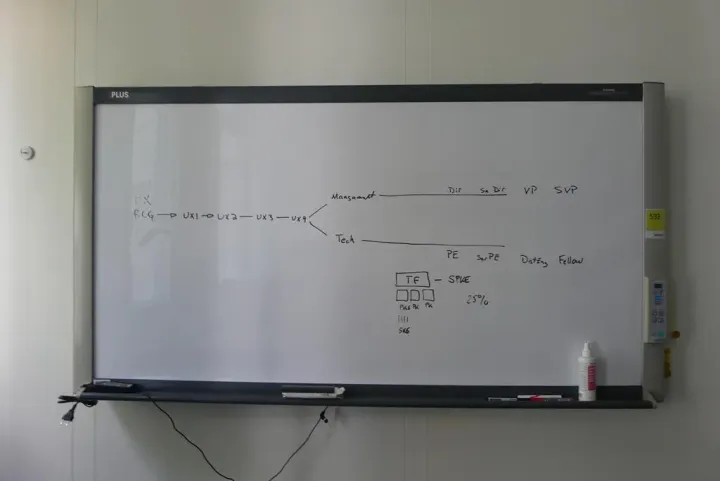 PLUS
UX
RCG → UX1 → UX2 — UX3 — UX4
Management Dir Sr Dir VP SVP
Tech
PE Sr PE DistEng Fellow
TF — SPUE
25%